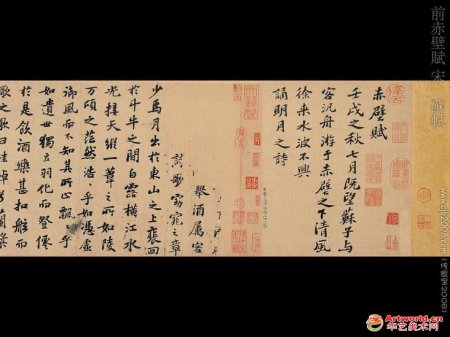 前赤壁賦 宋 蘇軾
赤壁賦
壬戌之秋七月既望蘇子與
客汎舟游于赤壁之下清風
徐来水波不興
誦明月之詩
舉酒屬客
歌窈窕之章
少焉月出於東山之上裴回
於斗牛之間白露横江水
光接天縱一葦之所如陵
万頃之茫然浩乎如憑虚
御風而不知其所止飄乎
如遺世獨立羽化而登僊
於是飲酒樂甚扣舷而
歌之歌曰桂棹兮蘭槳
Artworld.cn
华艺美术网